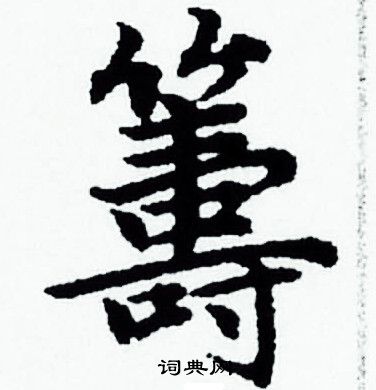 籌
词典网